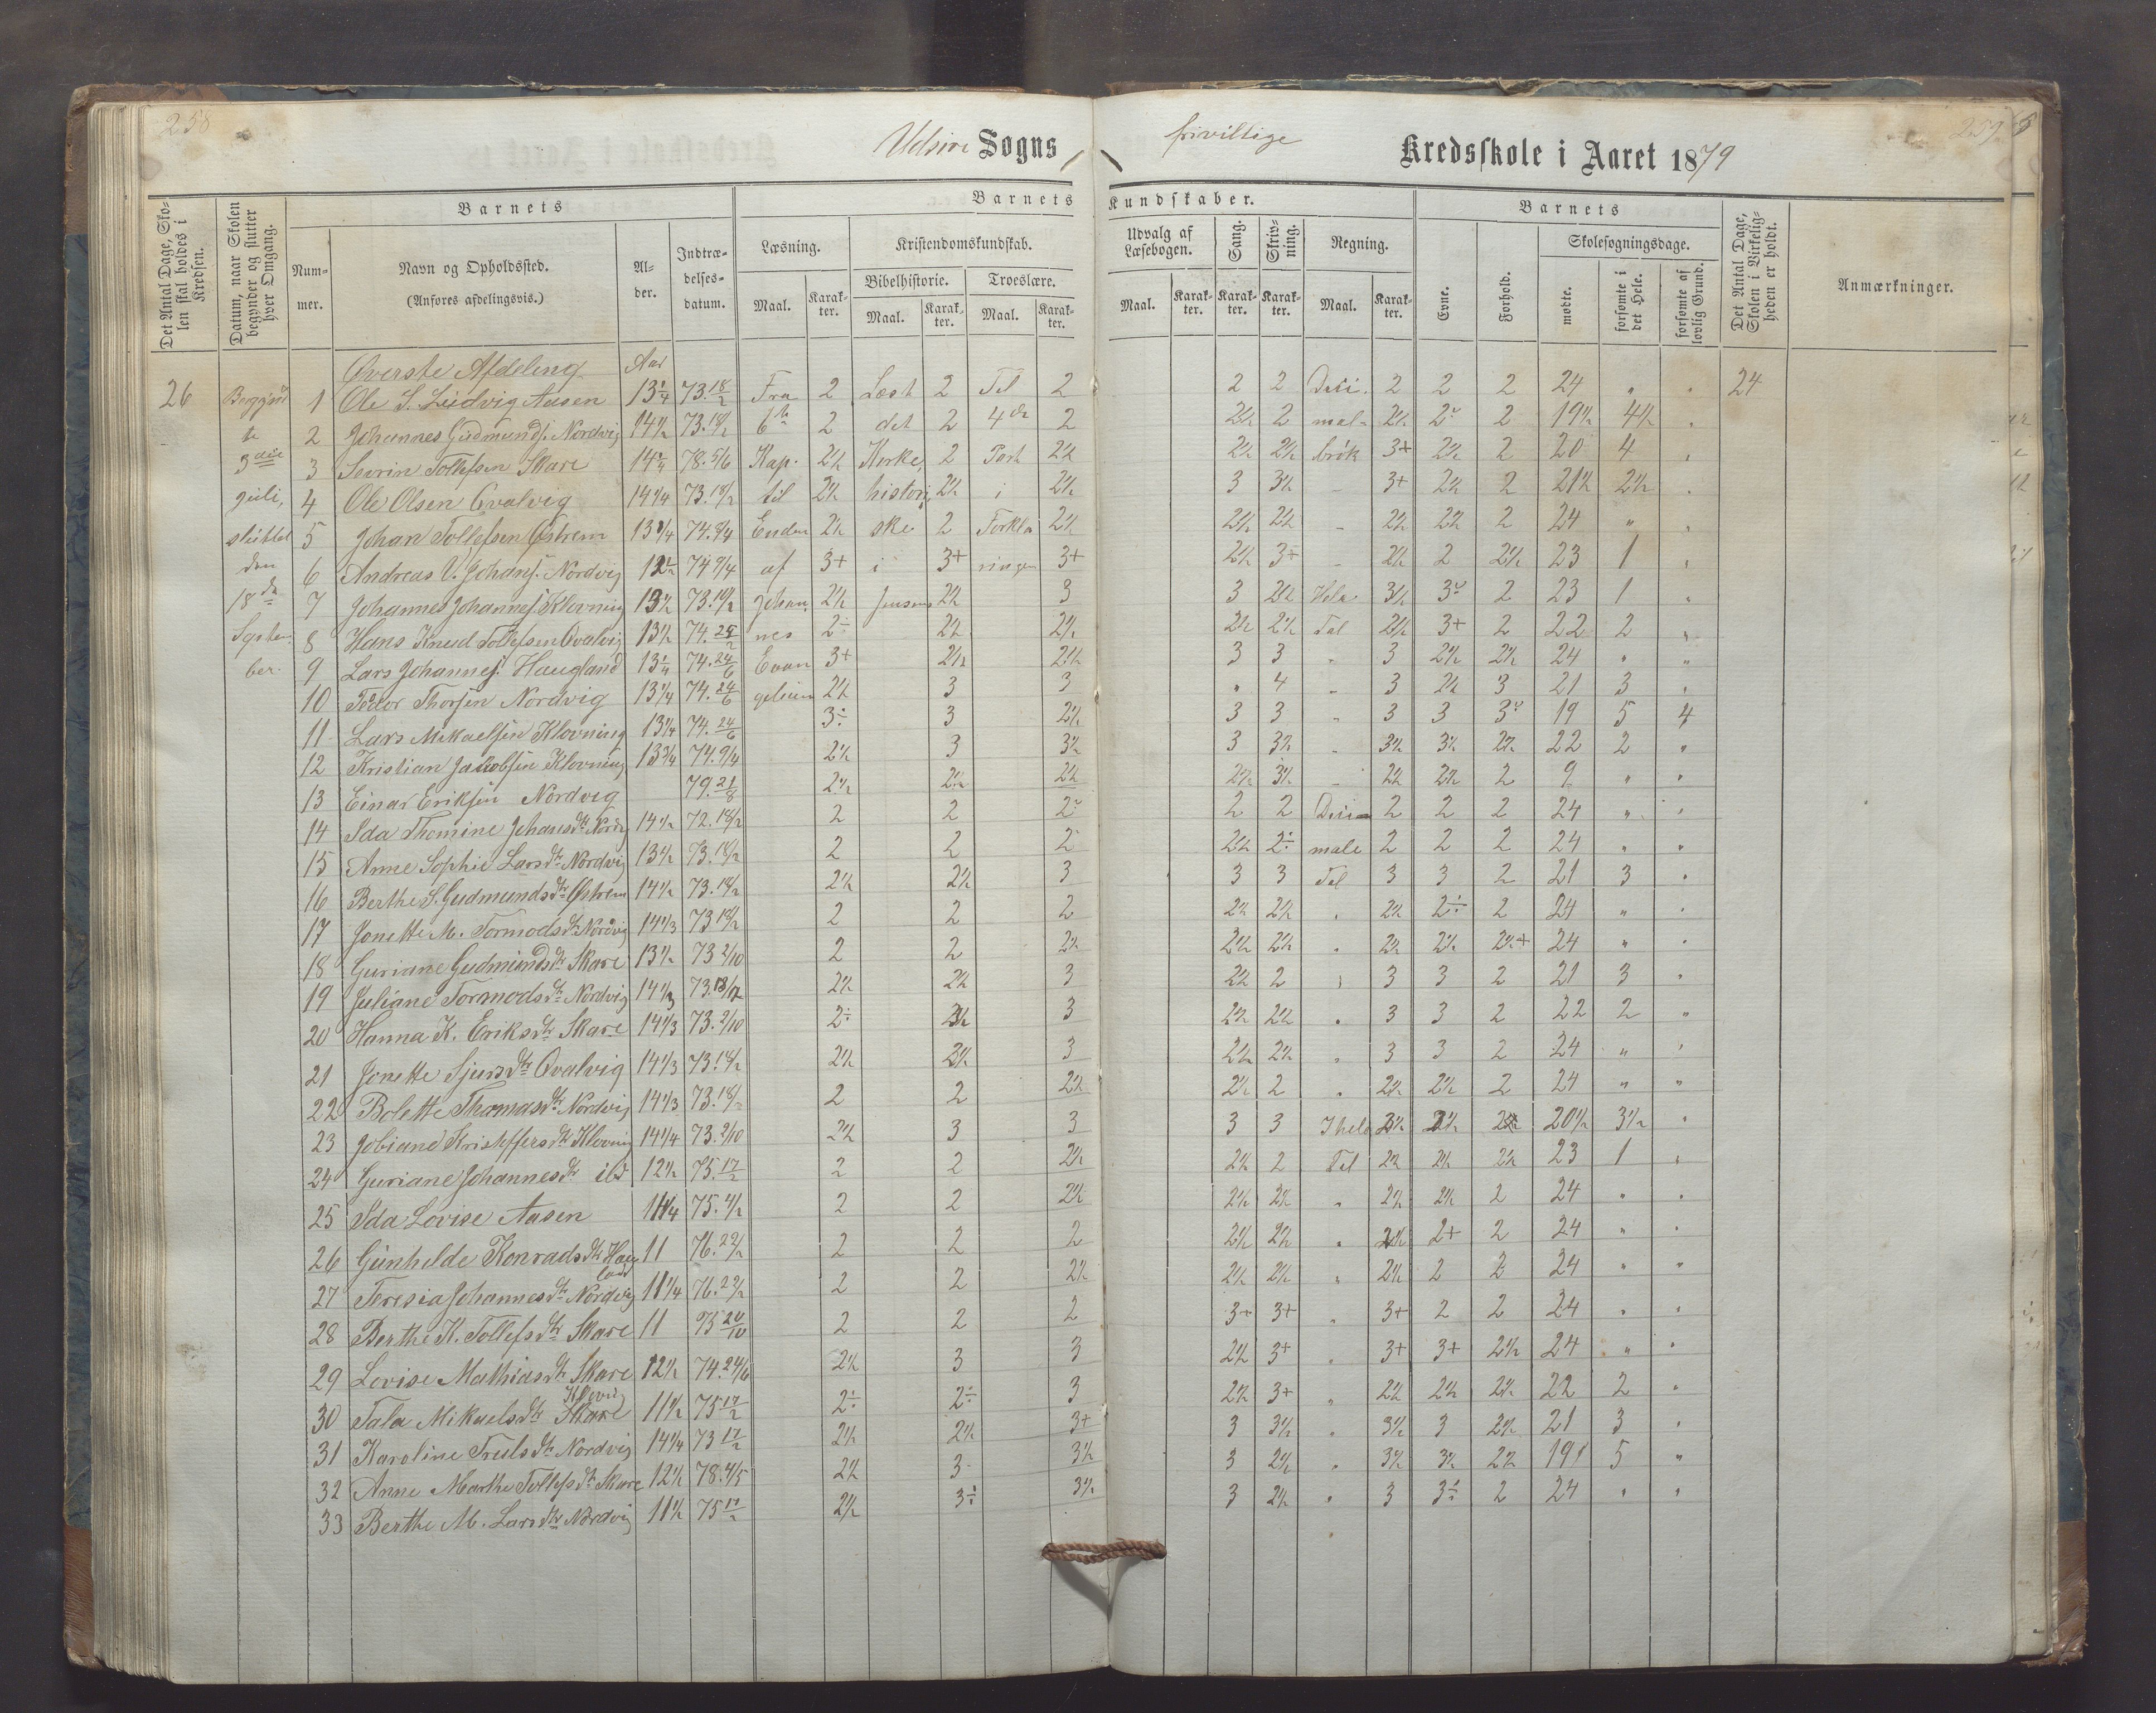 258
Udsire Sogns
frivillige
Kredsskole i Aaret 1879
259
Det Antal Dage, Skolen skal holdes i Kredsen.
Datum, naar Skolen begynder og slutter hver Omgang.
Barnets
Nummer.
Navn og Opholdssted.
(Anføres afdelingsvis.)
Alder.
Indtrædelses-datum.
Barnets Kundskaber.
Læsning.
Maal.
Karakter.
Kristendomskundskab.
Bibelhistorie.
Maal.
Karakter.
Troeslære.
Maal.
Karakter.
Udvalg af Læsebogen.
Maal.
Karakter.
Sang.
Karakter.
Skrivning.
Karakter.
Regning.
Maal.
Karakter.
Barnets
Evne.
Forhold.
Skolesøgningsdage.
mødte.
forsømte i det Hele.
forsømte af lovlig Grund.
Det Antal Dage, Skolen i Virkeligheden er holdt.
Anmærkninger.
Øverste Afdeling Aar
26 1 Ole S. Ludvig Aasen 13 1/4 73.18/2 Fra 2 Læst 2 Til 2 2 2 Deci- 2 2 2 24 " " 24
te 2 Johannes Gudmunds. Nordvig 14 1/2 73.18/2 6te 2 det 2 4de 2 2 1/2 2 mal- 2 1/2 2 2 19 1/2 4 1/2 "
3die 3 Sevrin Tollefsen Skare 78.5/6 Kap. 2 1/2 Kirke 2 Part 2 1/2 2 1/2 2 1/2 brøk 3+ 2 1/2 2 20 4 "
Juli, 4 Ole Olsen Qvalvig 14 1/4 73.18/2 til 2 1/2 histori 2 1/2 i 2 1/2 3 3 1/2 - 3+ 2 1/2 2 21 1/2 2 1/2 "
sluttet 5 Johan Tollefsen Østrem 74.9/4 Enden 2 1/2 ske 2 Forkla 2 1/2 2 1/2 2 1/2 - 2 1/2 2 1/2 2 24 " "
den 6 Andreas V. Johans. Nordvig 74 9/4 af 3+ i 3+ ringen 3+ 2 1/2 3+ - 2 1/2 2 2 1/2 23 1 "
18de 7 Johannes Johannes. Klovning 13 1/2 73.18/2 Johan 2 1/2 Jensens 2 1/2 3 3 2 1/2 Hele 3 1/2 2 23 1 "
Septem- 8 Hans Knud Tollefsen Qvalvig 13 1/2 nes 2÷ 2 1/2 2 1/2 2 1/2 2 1/2 Tal 2 1/2 3+ 2 22 2 "
ber. 9 Lars Johannes. Haugland 13 1/4 74.24/6 Evan 3+ 2 1/2 2 1/2 3 3 " 3 2 1/2 2 1/2 24 " "
10 Peder Thorsen Nordvig 13 1/4 74.24/6 gelium 2 1/2 3 3 " 4 - 3 2 1/2 3 21 3 "
11 Lars Mikaelsen Klovning 13 1/4 74.24/6 3÷ 3 2 1/2 3 3 " 3 3 19 5 4
12 Kristian Jakobsen Klovning 13 3/4 74.9/4 2 1/2 3 3 1/2 3 3 1/2 - 3 1/2 3 1/2 2 1/2 22 2 "
13 Einar Eriksen Nordvig 79.21/8 2 1/2 2 1/2 2 1/2 2 1/2 3 1/2 - 2 1/2 2 1/2 2 9 " "
14 Ida Thomine Johansdtr Nordv 14 1/2 72.18/2 2 2 2÷ 2 2 Deci- 2 2 2 24 " "
15 Anne Sophie Larsdtr Nordvig 13 1/2 73.18/2 2 2 2 2 1/2 2÷ male 2 2 2 24 " "
16 Berthe S. Gudmundsdtr Østrem 14 1/2 73.18/2 2 1/2 2 1/2 3 3 3 Tal 3 3 2 21 3 "
17 Jonette M. Tormodsdtr Nordvig 14 1/3 73 18/2 2 2 2 2 1/2 2 1/2 " 2 1/2 2÷ 2 24 " "
18 Guriane Gudmundsdtr Skare 13 1/2 73 2/10 2 2 2 1/2 2 1/2 2 1/2 " 2 1/2 2 1/2 24 " "
19 Juliane Tormodsdtr Nordvig 14 1/3 73.18/2 2 1/2 2 1/2 3 2 1/2 2 " 3 3 2 21 3 "
20 Hanna K. Eriksdtr Skare 14 1/3 73.2/10 2÷ 3 2 1/2 2 1/2 " 3 3 2 22 2 "
21 Jonette Sjursdtr Qvalvig 14 1/3 73.18/2 2 1/2 3 2 1/2 2 1/2 " 3 3 2 24 " "
22 Bolette Thomasdtr Nordvig 14 1/3 73.18/2 2 2 2 1/2 2 1/2 2 " 2 1/2 2 1/2 2 24 " "
23 Jobiane Kristoffersdtr Klovning 14 1/4 73.2/10 2 1/2 3 3 3 3 I hele 20 1/2 3 1/2 "
24 Guriane Johannesdtr ibd 12 1/2 75.17/2 2 2 2 1/2 2 1/2 2 Tal 2 1/2 2 1/2 2 1/2 23 1 "
25 Ida Lovise Aasen 11 1/4 2 2 2 1/2 2 1/2 2 1/2 " 2 1/2 2 1/2 2 24 " "
26 Gunhelde Konradsdtr Haugland 11 76.22/2 2 2 2 2 1/2 2 1/2 " 2 1/2 2+ 2 24 " "
27 Teresia Johannesdtr Nordvig 11 1/4 76.22/2 2 2 2 1/2 2 1/2 2 1/2 " 2 1/2 2 2 24 " "
28 Berthe K. Tollefsdtr Skare 11 75 20/10 2 2 2 3+ 3+ " 3+ 2 2 24 " "
29 Lovise Mathiasdtr Skare 12 1/2 74.24/6 2 1/2 3 3 2 1/2 3+ " 3+ 3+ 2 1/2 24 " "
30 Tala Mikaelsdtr Skare Klovng 11 1/2 75 17/2 2÷ 2÷ 3 2 1/2 3+ " 2 1/2 2 1/2 2 1/2 22 2 "
31 Karoline Trulsdtr Nordvig 14 1/4 73 17/2 2 1/2 2 1/2 3+ 3 3 1/2 " 3 1/2 3 2 1/2 21 3 "
32 Anne Marthe Tollefsdtr Skare 12 1/2 2 1/2 3 3 1/2 3 2 1/2 " 3 1/2 3 1/2 2 1/2 19 5 "
33 Berthe M. Larsdtr Nordvig 11 1/2 75 17/2 2 1/2 3÷ 3 1/2 3 2 1/2 " 3 3÷ 2 24 " "